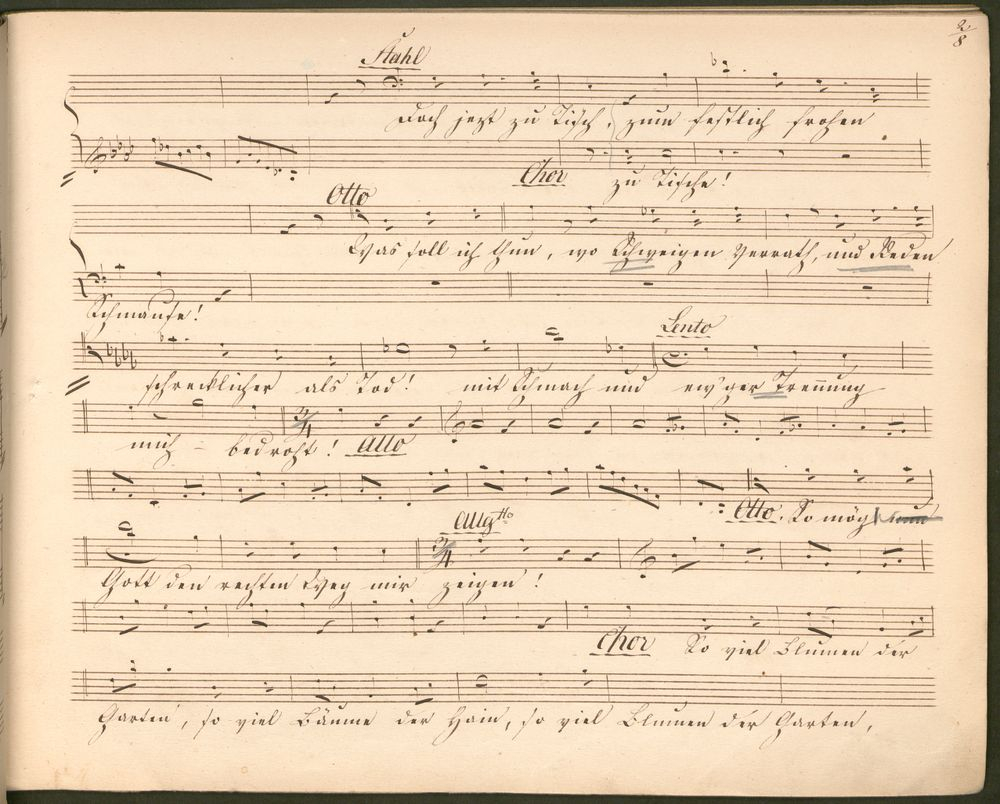 2/8
Stahl
Doch jezt zu Tisch, zum festlich frohen
Chor zu Tische!
Otto
Was soll ich thun, wo Schweigen Verrath, und Reden
Schmause!
Lento
schrecklicher als Tod! mit Schmach und ew'ger Trennung
3/4
mich bedroht! Allo
Otto. So mög
Allgtto
3/4
Gott den rechten Weg mir zeigen!
Chor So viel Blumen der
Garten, so viel Bäume der Hain, so viel Blumen der Garten,